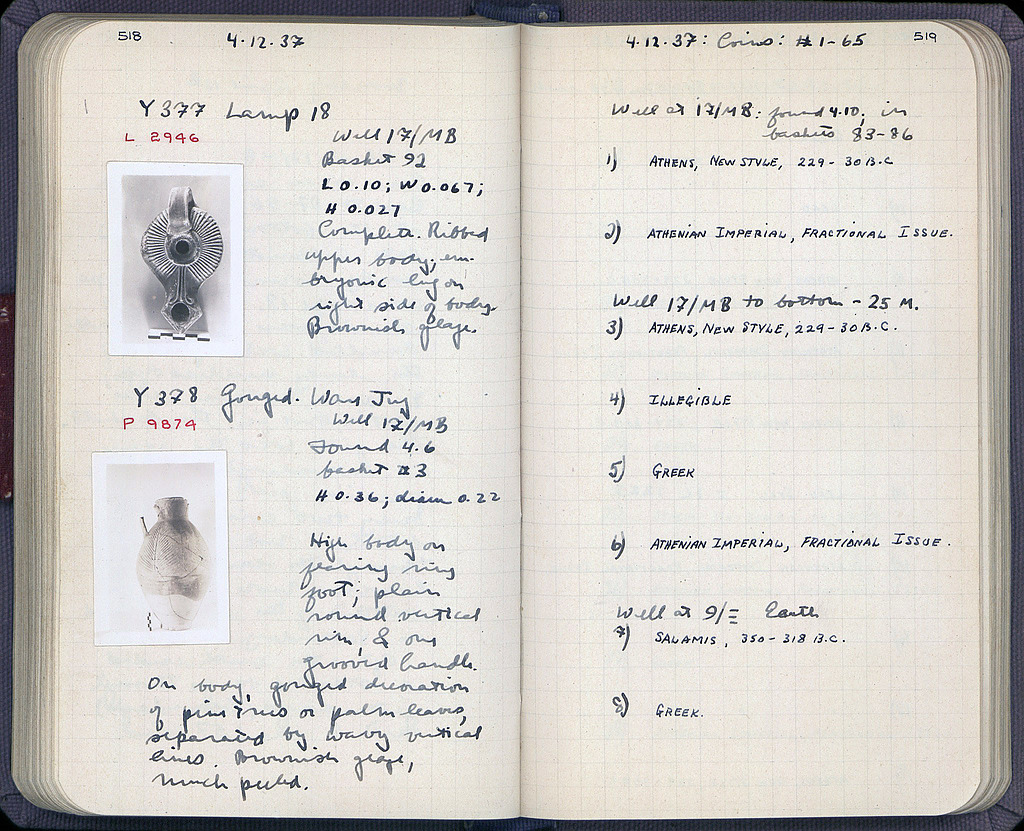 518
4.12.37
Y 377 Lamp 18
L 2946
Well 17/MB
Basket 92
L 0.10; W 0.067;
H 0.027
Complete. Ribbed
upper body; em-
bryonic lug on
right side of body.
Brownish glaze.
Y 378 Gouged. Ware Jug
P 9874
Well 17/MB
Found 4.6
basket #3
H 0.36; diam 0.22
High body on
flaring ring
foot; plain
round vertical
rim, & one
grooved handle.
On body, gouged decoration
of pine trees or palm leaves,
separated by wavy vertical
lines. Brownish glaze,
much peeled.
4.12.37: Coins: #1-65
519
Well at 17/MB: found 4.10; in
baskets 83-86
1) ATHENS, NEW STYLE, 229-30 B.C
2) ATHENIAN IMPERIAL, FRACTIONAL ISSUE.
Well 17/MB to bottom - 25 M.
3) ATHENS, NEW STYLE, 229-30 B.C.
4) ILLEGIBLE
5) GREEK
6) ATHENIAN IMPERIAL, FRACTIONAL ISSUE.
Well at 9/Ξ Earth
7) SALAMIS, 350-318 B.C.
8) GREEK.